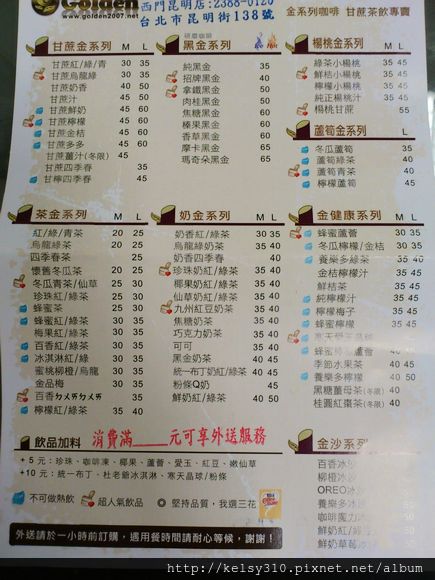 Golden
www.golden2007.net
西門昆明店:2388-0120
台北市昆明街138號
金系列咖啡 甘蔗茶飲專賣
甘蔗金系列 M L
甘蔗紅/綠/青 30 35
甘蔗烏龍綠 30 35
甘蔗奶香 40 50
甘蔗汁 45
甘蔗鮮奶 45
甘蔗檸檬 45
甘蔗金桔 45
甘蔗多多 45
甘蔗薑汁(冬限) 45
甘蔗四季春 35
甘檸四季春 45
研磨咖啡
黑金系列
純黑金 35
招牌黑金 40
拿鐵黑金 50
肉桂黑金 50
焦糖黑金 60
榛果黑金 60
香草黑金 60
摩卡黑金 60
瑪奇朵黑金 65
楊桃金系列 M L
綠茶小楊桃 35 45
鮮桔小楊桃 35 45
檸檬小楊桃 35 45
純正楊桃汁 35 45
楊桃甘蔗 55
蘆筍金系列 L
冬瓜蘆筍 35
蘆筍綠茶 40
蘆筍青茶 40
檸檬蘆筍 45
茶金系列 M L
紅/綠/青茶 20 25
烏龍綠茶 20 25
四季春茶 25
懷舊冬瓜茶 20 25
冬瓜青茶/仙草 25 30
珍珠紅/綠茶 25 30
蜂蜜茶 25 30
蜂蜜紅/綠茶 30 35
梅果紅/綠茶 30 35
百香紅/綠茶 30 35
冰淇淋紅/綠 30 35
蜜桃柳橙/烏龍 30 35
金品梅 30 35
百香ㄉㄨㄞㄉㄨㄞ 35
檸檬紅/綠茶 35 40
奶金系列 M L
奶香紅/綠茶 30 35
烏龍綠奶茶 30 35
奶香四季春 40
珍珠奶紅/綠茶 35 40
椰果奶紅/綠茶 35 40
仙草奶紅/綠茶 35 40
九州紅豆奶茶 35 40
焦糖奶茶 35 40
巧克力奶茶 35 40
可可 35 40
黑金奶茶 40 45
統一布丁奶紅/綠茶 40 50
粉條Q奶 45
鮮奶紅/綠茶 40 50
金健康系列 M L
蜂蜜蘆薈 30 35
冬瓜檸檬/金桔 30 35
養樂多綠茶 35
金桔檸檬汁 35 45
鮮桔汁 35 45
純檸檬汁 35 45
檸檬梅子 35 45
蜂蜜檸檬 35 45
寒天愛玉晶球
蜂蜜檸檬蘆薈 40
季節水果茶 40
養樂多檸檬 40 50
黑糖薑母茶(冬限) 40
桂圓紅棗茶(冬限) 40
飲品加料
消費滿_____元可享外送服務
+5元：珍珠、咖啡凍、椰果、蘆薈、愛玉、紅豆、嫩仙草
+10元：統一布丁、杜老爺冰淇淋、寒天晶球/粉條
不可做熱飲 超人氣飲品 ◎ 堅持品質，我選三花
金沙系列
百香冰沙
柳橙冰沙
OREO冰沙
養樂多冰沙
咖啡魔力冰沙
外送請於一小時前訂購，遇用餐時間請耐心等候，謝謝！
http://kelsy310.pixnet.net/album